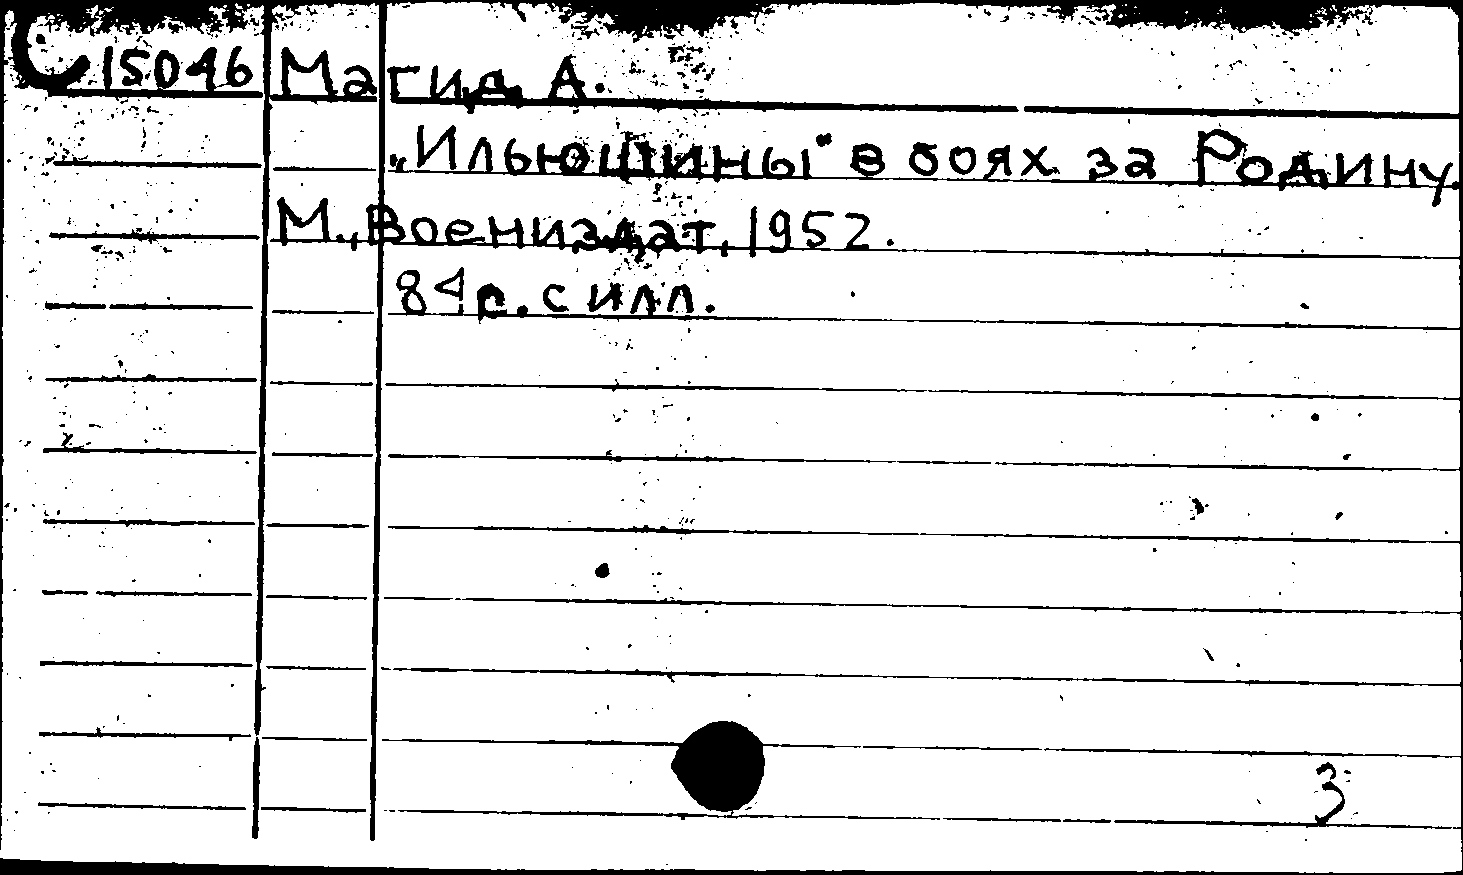 С 15046 Магид, А.
„Ильюшины" в боях за Родину.
М., Воениздат, 1952.
84 с. с илл.
3